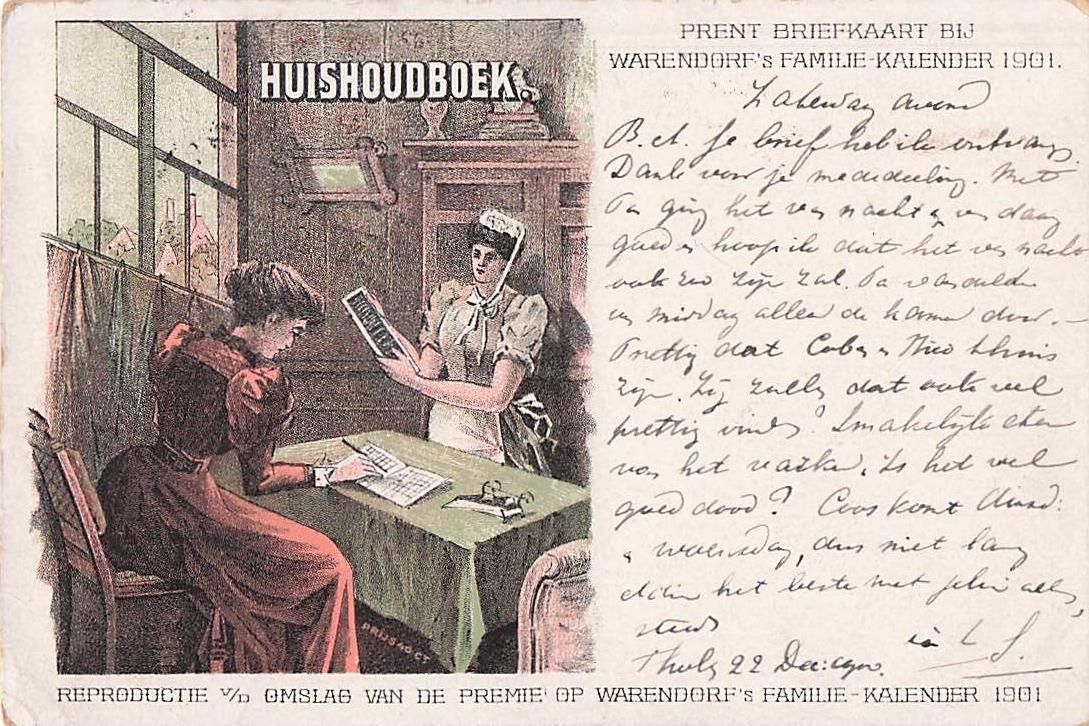 HUISHOUDBOEK.
PRENT BRIEFKAART BIJ
WARENDORF's FAMILIE-KALENDER 1901.
Zaterdag avond
B. ct. Je brief heb ik ontvang.
Dank voor je mededeeling. Met
Pa ging het van nacht en van daag
goed en hoop ik dat het van nacht
ook zoo zijn zal. Pa wandelde
van middag alleen de kamer door. —
Prettig dat Coba en Nico thuis
zijn. Zij zullen dat ook wel
prettig vinden? Smakelijk eten
van het varken, is het wel
goed dood? Coos komt dinsd:
woensdag, dus niet lang
het beste met jelui allen,
steeds
L S.
22 Dec: 1900.
HUISHOUDBOEK
PRIJS
REPRODUCTIE v/D OMSLAG VAN DE PREMIE OP WARENDORF's FAMILIE-KALENDER 1901